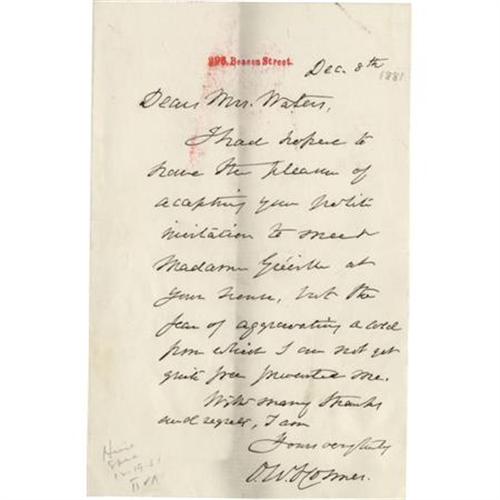 296, Beacon Street.
Dec. 8th
1881
Dear Mrs. Waters,
I had hoped to
have the pleasure of
accepting your polite
invitation to meet
Madame Gréville at
your house, but the
fear of aggravating a cold
from which I am not yet
quite free prevented me.
With many thanks
and regrets, I am
Yours very truly
O. W. Holmes.